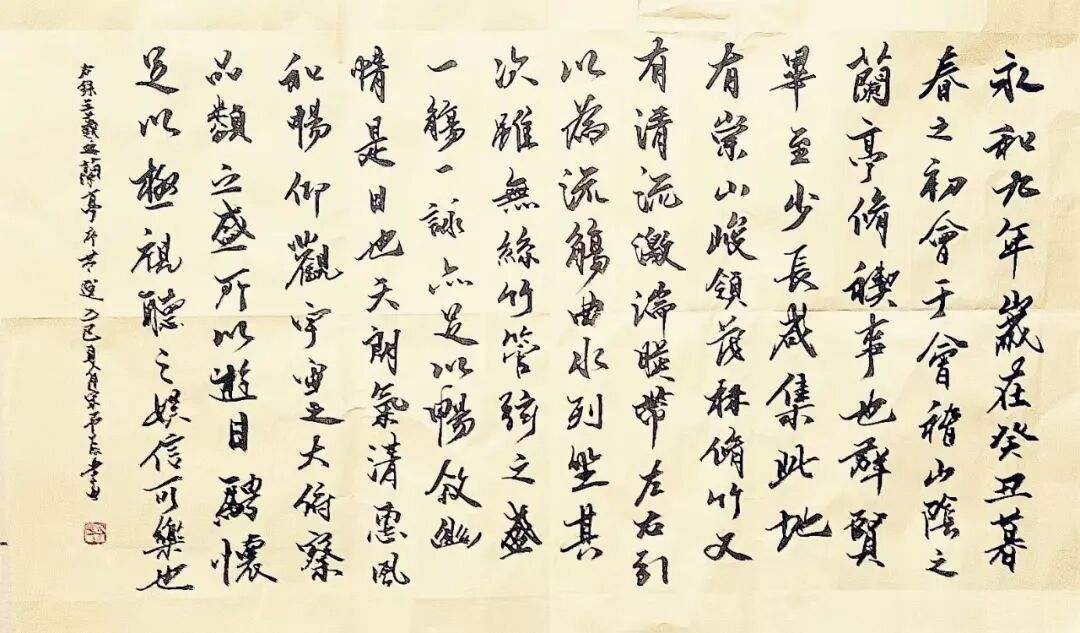 永和九年歲在癸丑暮
春之初會于會稽山陰之
蘭亭脩禊事也群賢
畢至少長咸集此地
有崇山峻領茂林脩竹又
有清流激湍暎帶左右引
以為流觴曲水列坐其
次雖無絲竹管弦之盛
一觴一詠亦足以暢敘幽
情是日也天朗氣清惠風
和暢仰觀宇宙之大俯察
品類之盛所以遊目騁懷
足以極視聽之娛信可樂也
右錄王羲之蘭亭序節選乙巳夏月